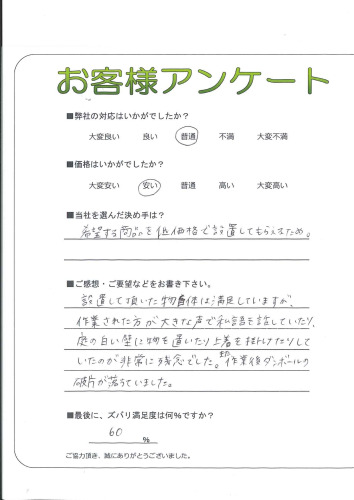 お客様アンケート
■弊社の対応はいかがでしたか?
大変良い 良い 普通 不満 大変不満
■価格はいかがでしたか?
大変安い 安い 普通 高い 大変高い
■当社を選んだ決め手は?
希望する商品を低価格で設置してもらえるため。
■ご感想・ご要望などをお書き下さい。
設置して頂いた物自体は満足していますが、
作業された方が大きな声で私語を話していたり、
庭の白い壁に物を置いたり上着を掛けたりして
いたのが非常に残念でした。又、作業後ダンボールの
破片が落ちていました。
■最後に、ズバリ満足度は何%ですか?
60 %
ご協力頂き、誠にありがとうございました。